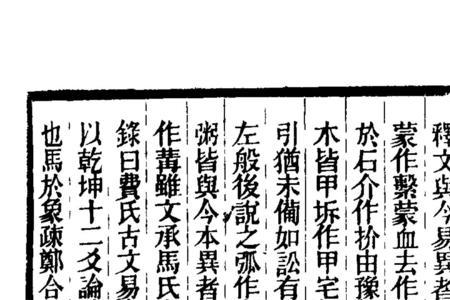 釋文與今易異者
蒙作繫蒙血去作
於石介作扴由豫
木皆甲坼作甲宅
引猶未僃如訟有
左般後說之弧作
粥皆與今本異者
作蒷雖文承馬氏
錄曰費氏古文易
以乾坤十二爻論
也馬於象疎鄭合